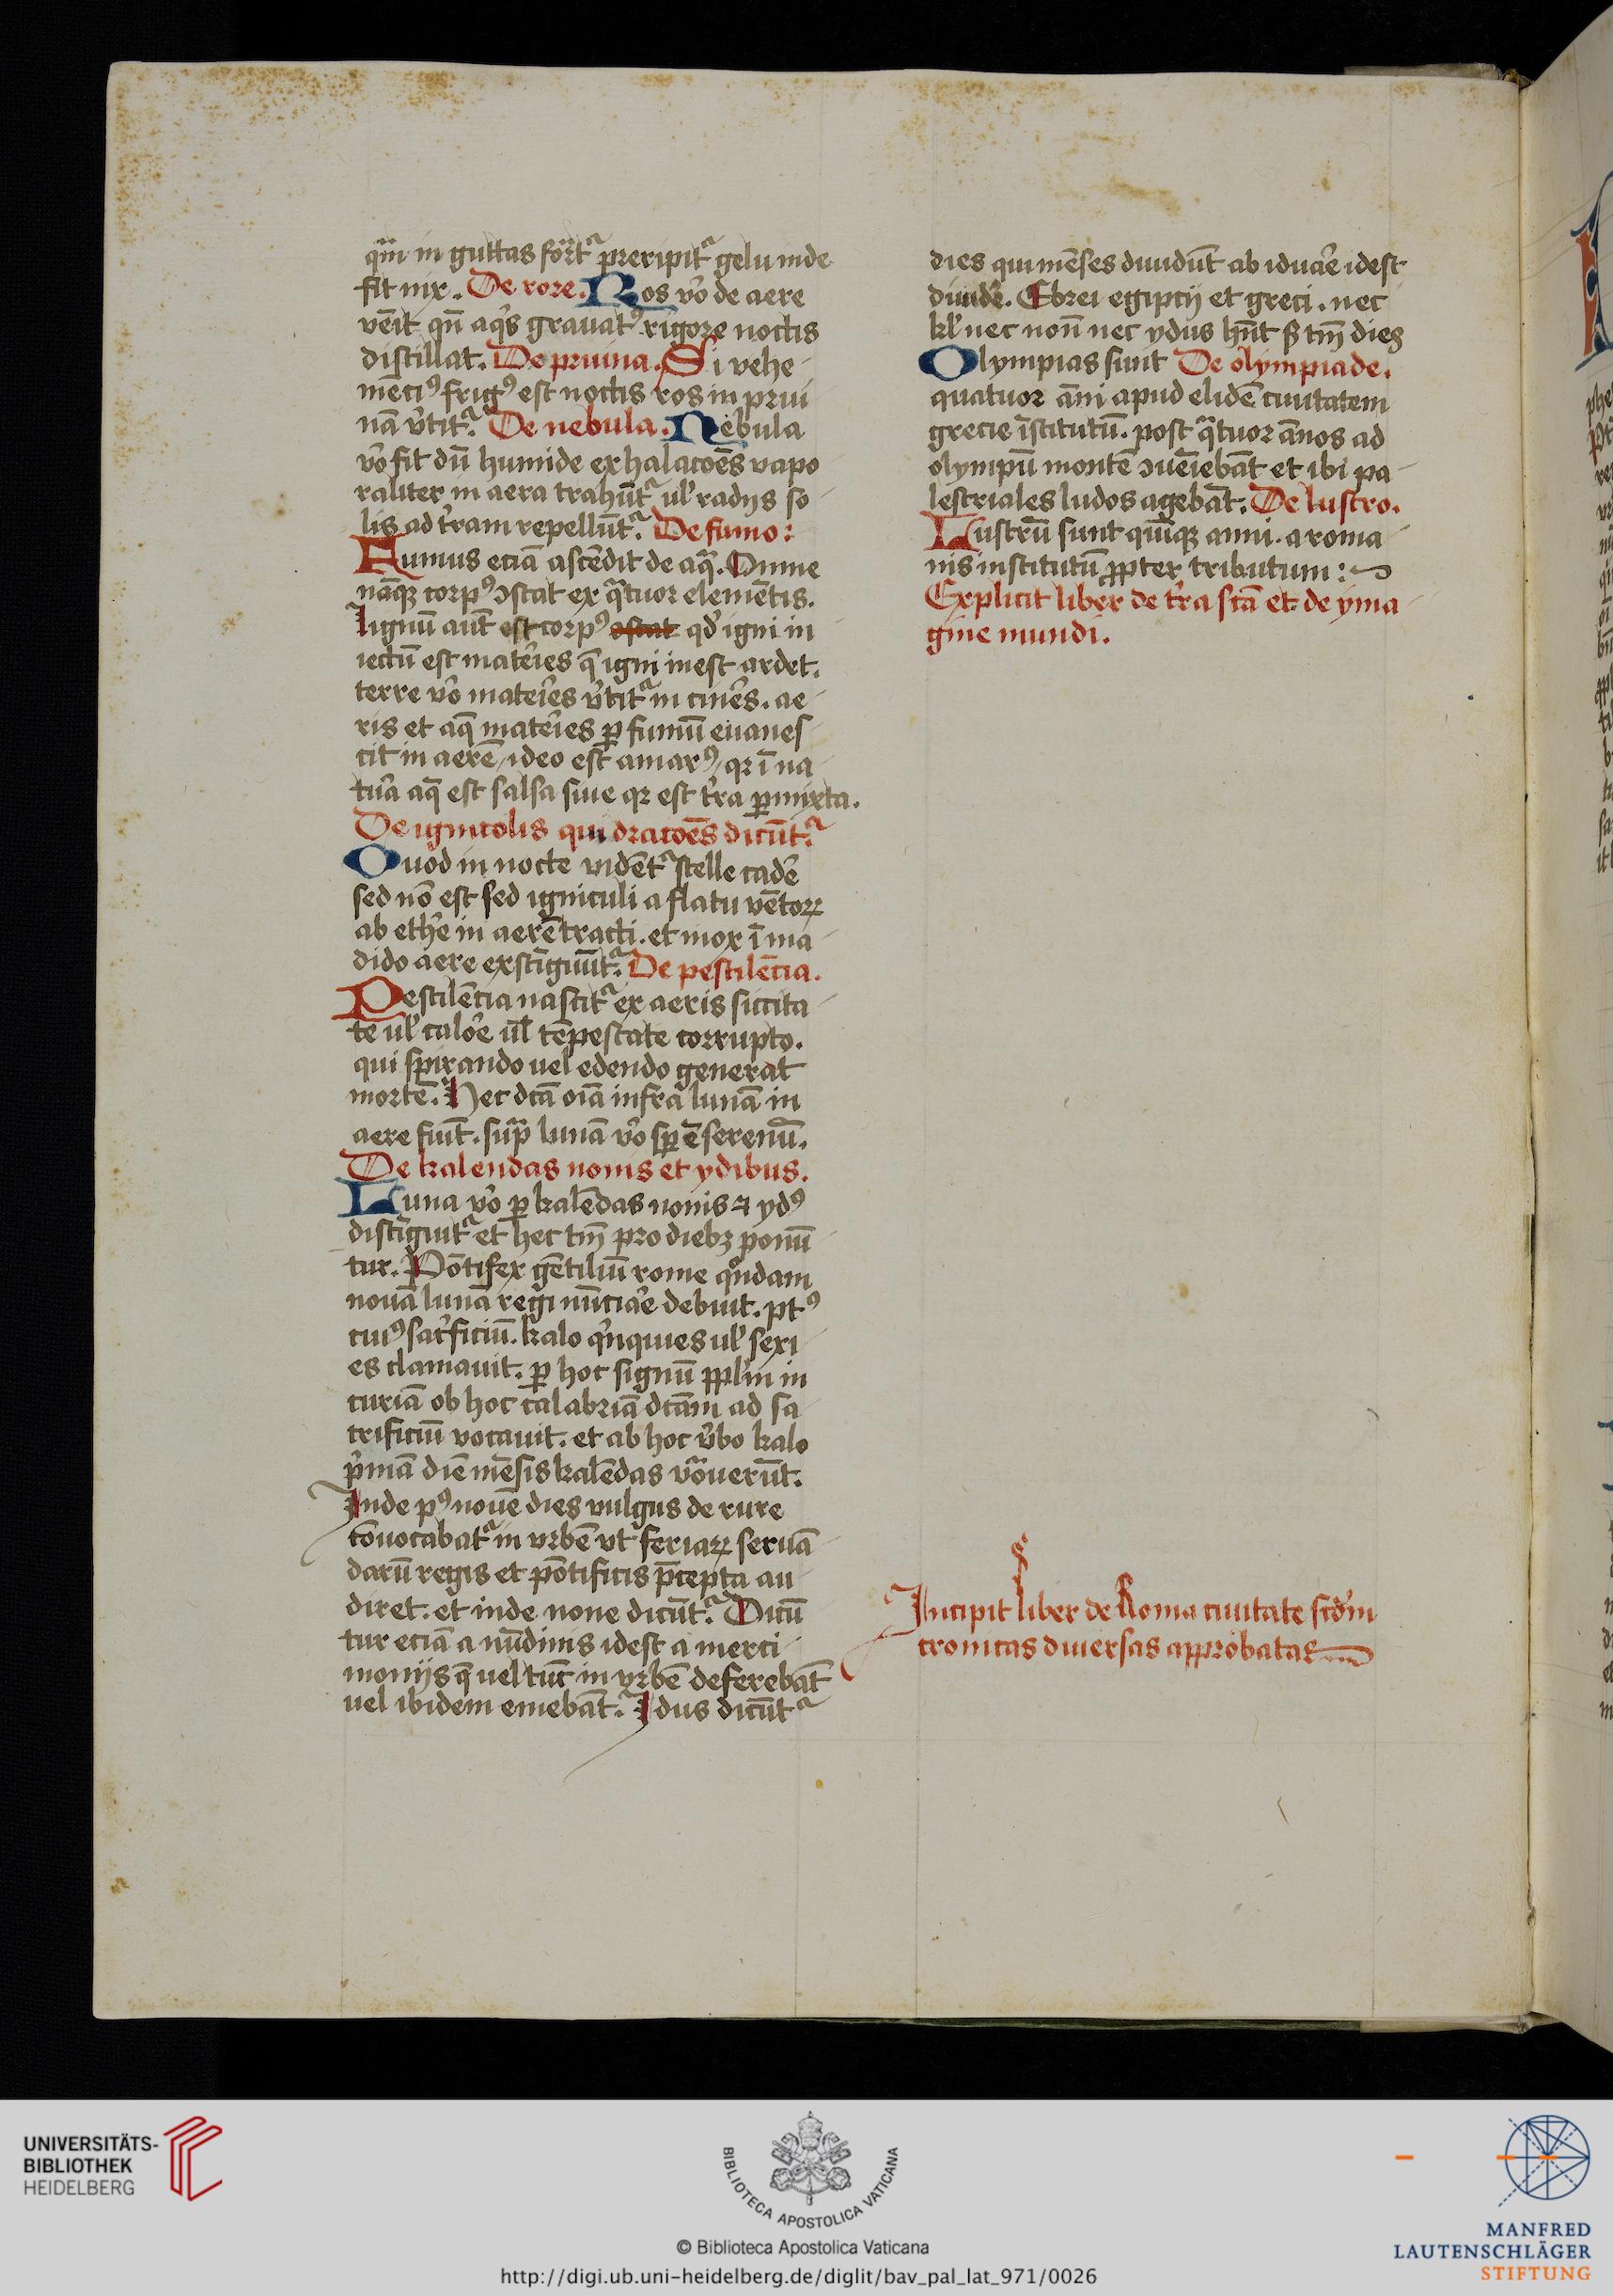 qm̄ in guttas form̄t᷑ preripit᷑ gelu inde
fit nix. De rore. Ros vo᷑ de aere
venīt qn̄ aqis grauatꝰ rigore noctis
distillat. De pruina. Si vehe
mēciꝰ frigꝰ est noctis ros in prui
nā v᷑tit᷑. De nebula. Nebula
vo᷑ fit dū humide exhalacōes vapo
raliter in aera trahūt᷑ ul᷑ radijs so
lis ad t᷑ram repellūt᷑. De fumo:
Fumus eciā ascēdit de aqᷓ. Omne
nāqꝫ corpꝰ ↄstat ex qᷓtuor elemētis.
lignū aūt est corpꝰ ↄstat qd᷑ igni in
iectū est mate᷑ies q̄ igni inest ardet.
terre vo᷑ mate᷑ies v᷑tit᷑ in cine᷑s. ae
ris et aq̄ mate᷑ies ꝑ fumū euanes
cit in aerē ideo est amarꝰ qꝛ ī na
tu᷑a aq̄ est salsa siue qꝛ est t᷑ra ꝑmixta.
De ignicolis qui dracōes dicūt᷑
Quod in nocte vidēt᷑ stelle cade᷑
sed nō est sed igniculi a flatu vētoꝝ
ab ethe᷑ in aerē tracti. et mox ī ma
dido aere exstīguūt᷑. De pestilēcia.
Pestilēcia nascit᷑ ex aeris siccita
te ul᷑ calo᷑e ul᷑ tēpestate corrupto.
qui spirando uel edendo generat
mortē. Hec dcā oīa infra lunā in
aere fiūt. supᷓ lunā vo᷑ sꝑ ē serenū.
De kalendas nonis et ydibus.
Luna vo᷑ ꝑ kalēdas nonis ⁊ ydꝰ
distīguit᷑ et hec tm̄ pro diebꝫ ponū
tur. Pōtifex gētiliū rome qͦndam
nouā lunā regi nūcia᷑e debuit. ptꝰ
cuiꝰ sac᷑ficiū. kalo qͥnquies ul᷑ sexi
es clamauit. ꝑ hoc signū ppl᷑m in
curiā ob hoc calabriā dcām ad sa
crificiū vocauit. et ab hoc v᷑bo kalo
pͥmā diē mēsis kalēdas vōauerūt.
Inde pꝰ nouē dies vulgus de rure
cōuocabat᷑ in vrbē vt feriaꝝ seruā
darū regis et pōtificis p̄cepta au
diret. et inde none dicūt᷑. Dicū
tur eciā a nūdinis idest a merci
monijs q̄ uel tūc in vrbē deferebāt
uel ibidem emebāt. Idus dicūt᷑
dies qui mēses diuidūt ab idua᷑e idest
diuide᷑. Ebrei egipcij et greci. nec
kl᷑ nec non̄ nec ydus hn̄t sꝫ tm̄ dies
Olympias sunt De olympiade.
quatuor āni apud elidē ciuitatem
grecie īstitutū. post qᷓtuor ānos ad
olympū montē ↄueniebāt et ibi pa
lestriales ludos agebāt. De lustro.
Lustrū sunt quīqꝫ anni. a roma
nis institutū ꝓpter tributum:
Explicit liber de t᷑ra scā et de yma
gine mundi.
Incipit liber de Roma ciuitate scd᷑m
cronicas diuersas approbatas
UNIVERSITÄTS-
BIBLIOTHEK
HEIDELBERG
BIBLIOTECA APOSTOLICA VATICANA
© Biblioteca Apostolica Vaticana
http://digi.ub.uni-heidelberg.de/diglit/bav_pal_lat_971/0026
MANFRED
LAUTENSCHLÄGER
STIFTUNG